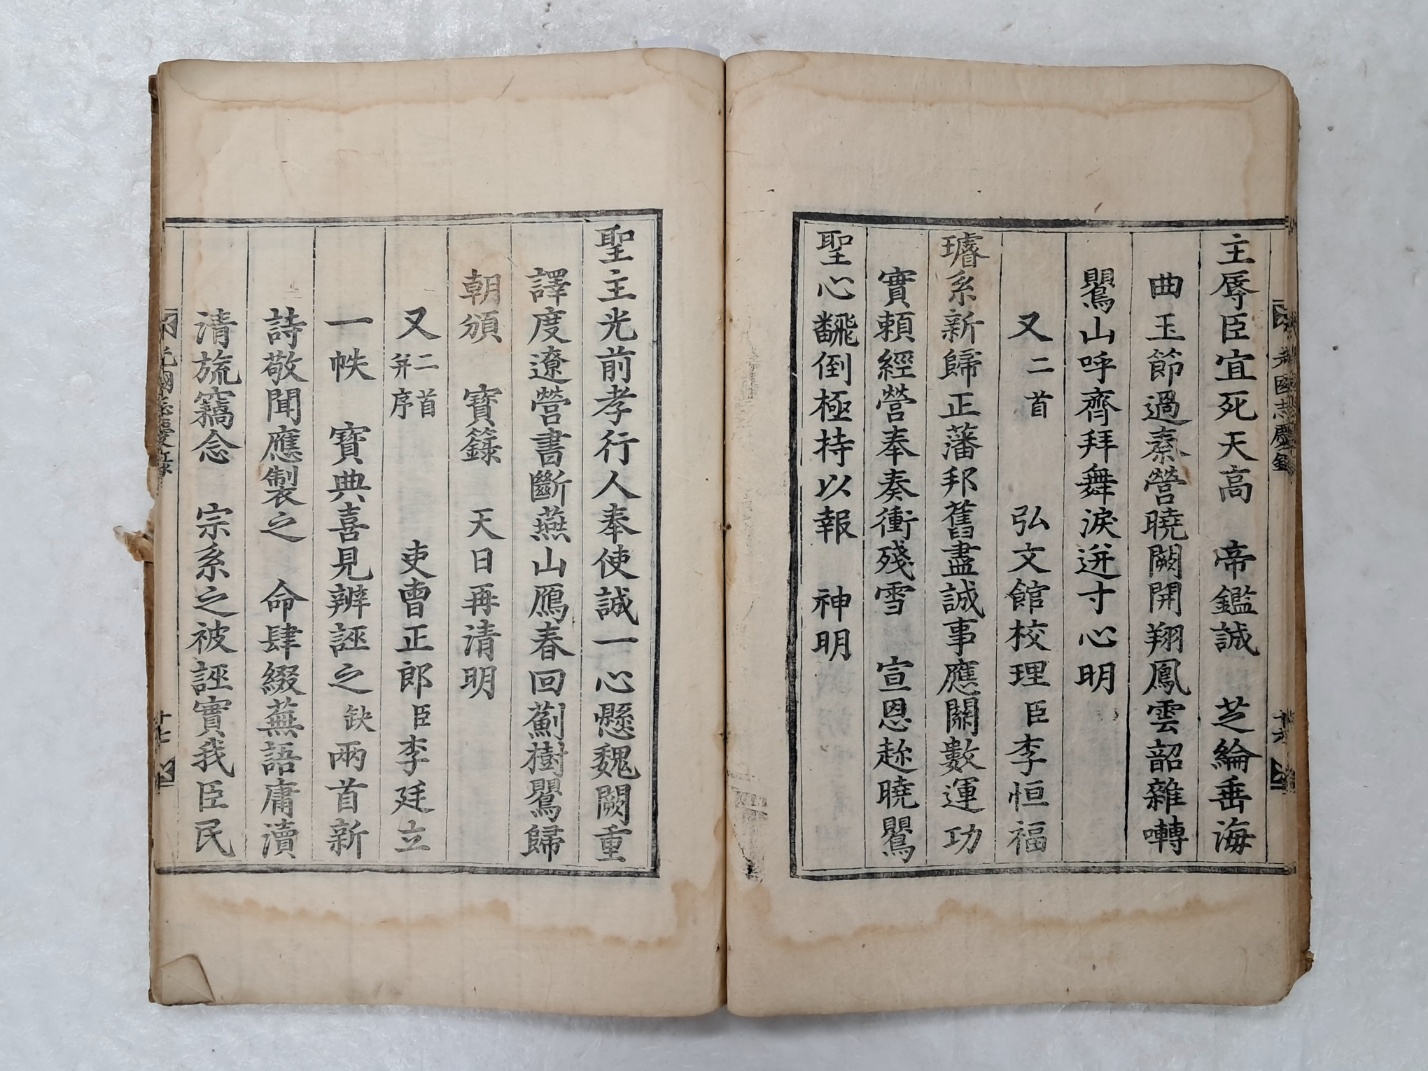 主辱臣宜死天高　帝鑑誠　芝綸垂海
曲玉節過秦營曉闕開翔鳳雲韶雜囀
鸎山呼齊拜舞淚迸寸心明
又二首　弘文館校理臣李恒福
璿系新歸正藩邦舊盡誠事應關數運功
實賴經營奉奏衝殘雪　宣恩趂曉鸎
聖心飜倒極持以報　神明
光國志慶錄
十六
聖主光前孝行人奉使誠一心懸魏闕重
譯度遼營書斷燕山鴈春回薊樹鸎歸
朝頒　寶籙　天日再清明
又二首并序　吏曹正郎臣李廷立
一帙　寶典喜見辨誣之缺兩首新
詩敬聞應製之　命肆綴蕪語庸瀆
清旒竊念　宗系之被誣實我臣民
光國志慶錄
十七